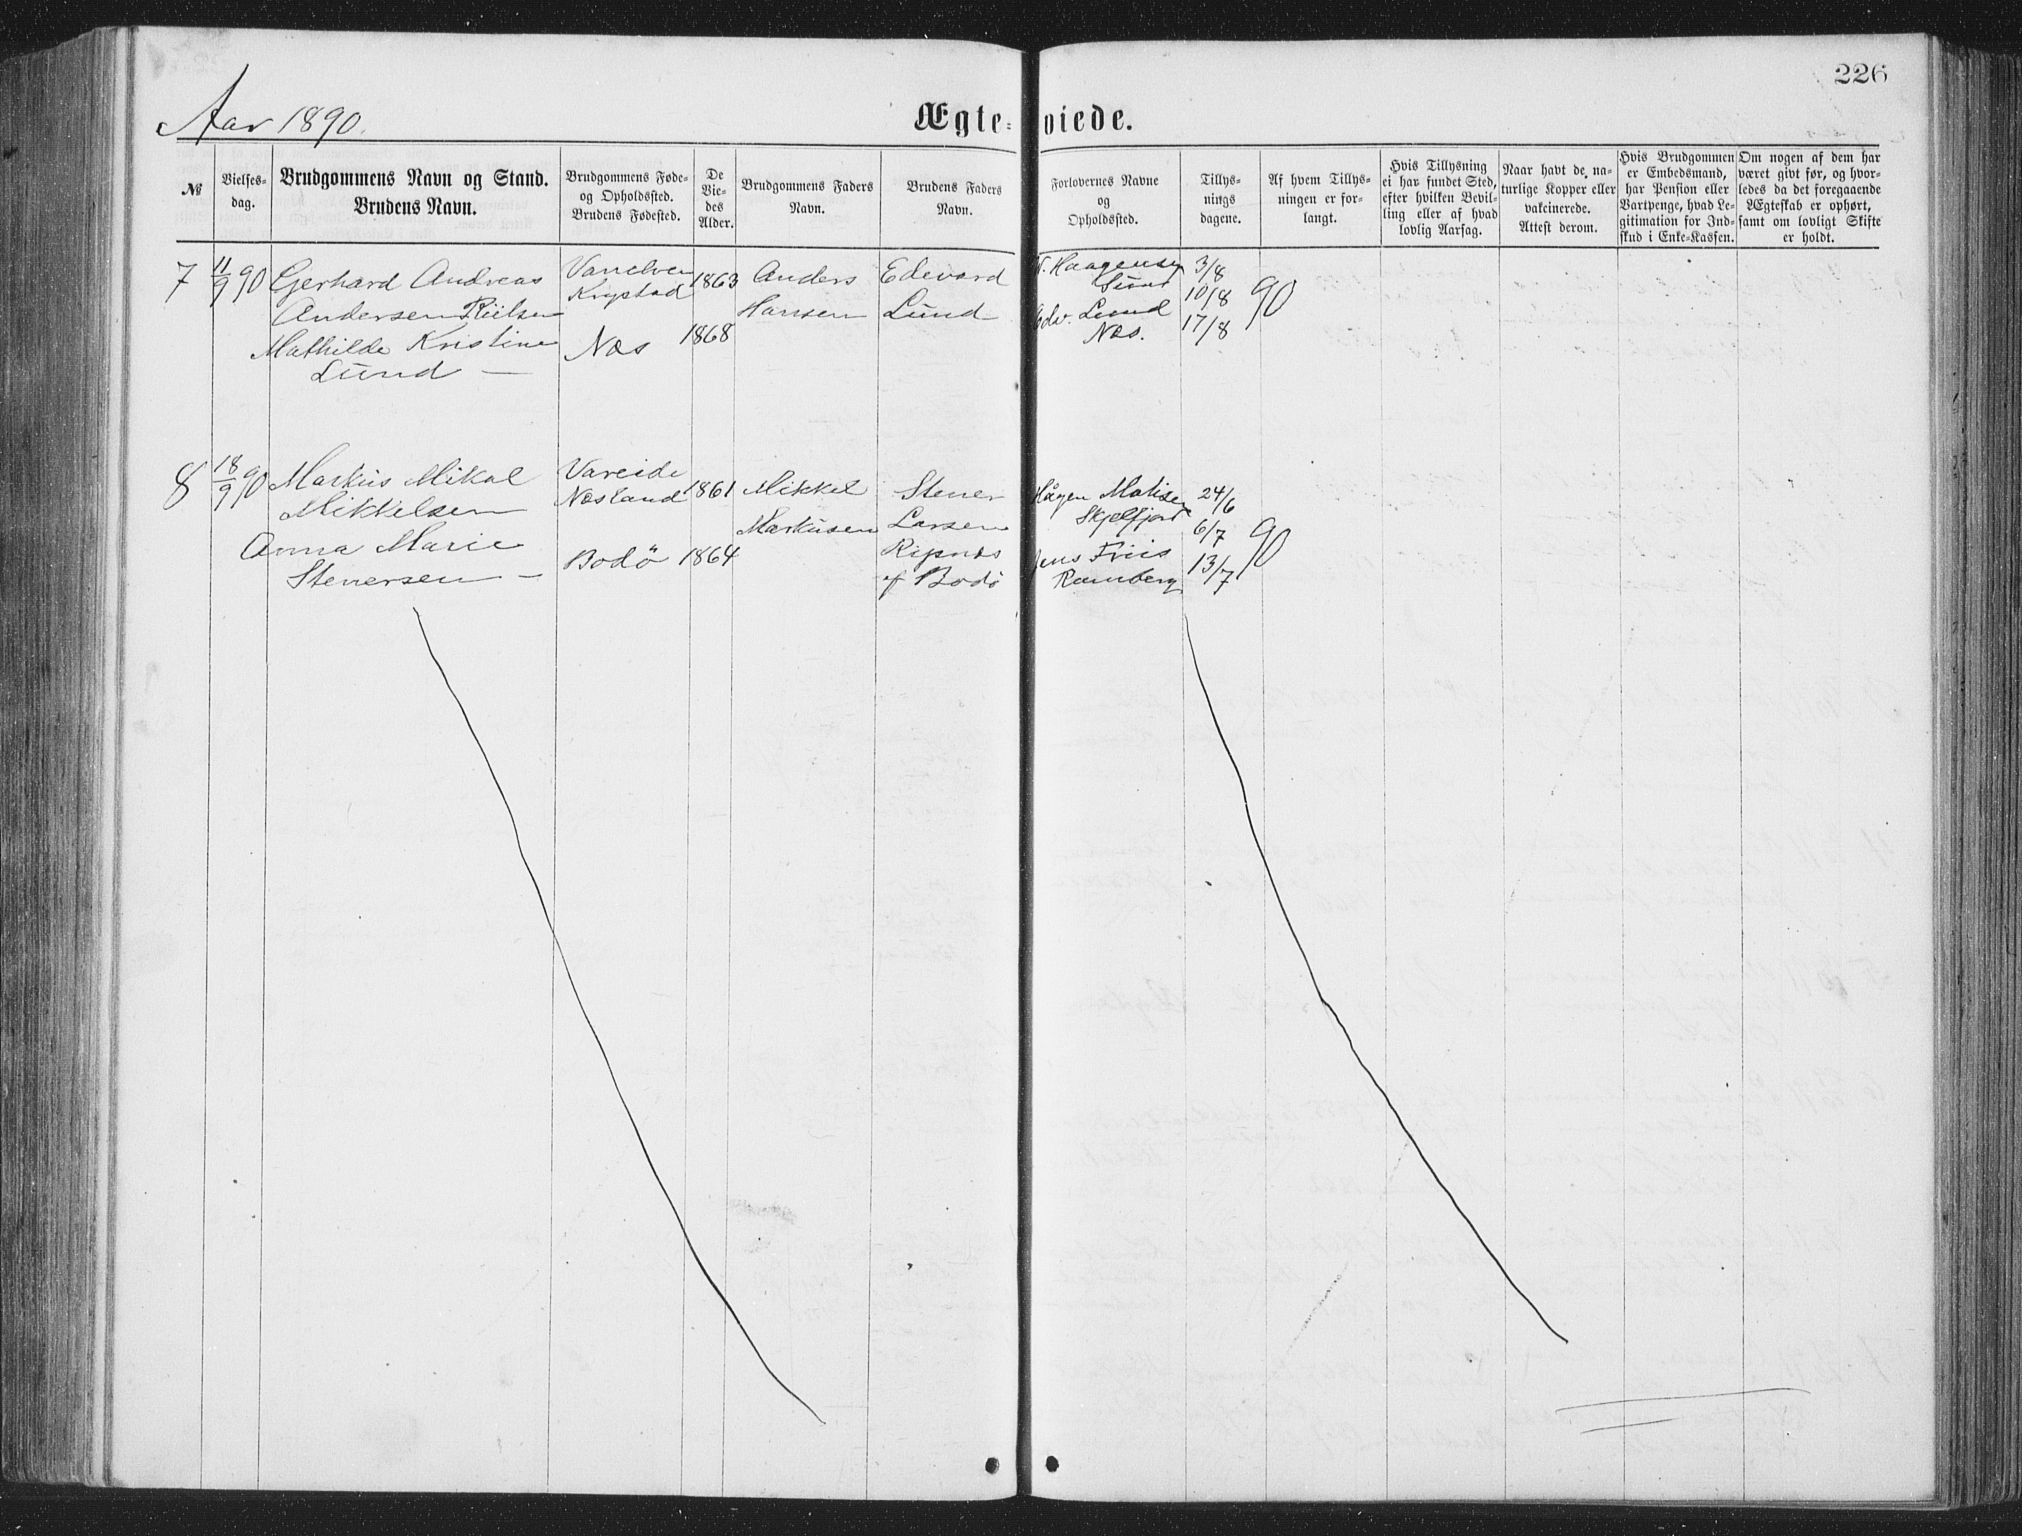 226
Aar 1890.
Ægte-viede.
№
Vielses-
dag.
Brudgommens Navn og Stand.
Brudens Navn.
Brudgommens Føde-
og Opholdssted.
Brudens Fødested.
De
Vie-
des
Alder.
Brudgommens Faders
Navn.
Brudens Faders
Navn.
Forlovernes Navne
og
Opholdssted.
Tillys-
nings
dagene.
Af hvem Tillys-
ningen er for-
langt.
Hvis Tillysning
ei har fundet Sted,
efter hvilken Bevil-
ling eller af hvad
lovlig Aarsag.
Naar havt de na-
turlige Kopper eller
vakcinerede.
Attest derom.
Hvis Brudgommen
er Embedsmand,
har Pension eller
Vartpenge, hvad Le-
gitimation for Ind-
skud i Enke-Kassen.
Om nogen af dem har
været givt før, og hvor-
ledes da det foregaaende
Ægteskab er ophørt,
samt om lovligt Skifte
er holdt.
7
11/9 90
Gerhard Andreas
Andersen
Mathilde Kristine
Lund —
Krystad
Næs
1863
1868
Anders
Hansen
Edevard
Lund
Haagensen
Sund
Edv. Lund
Næs.
3/8
10/8
17/8
90
8
18/9 90
Markus Mikal
Mikkelsen
Anna Marie
Stenersen —
Vareide
Næsland
Bodø
1861
1864
Mikkel
Markusen
Stener
Larsen
Ripnæs
af Bodø
Hågen Matisen
Skjelfjord
Jens Friis
Ramberg
24/6
6/7
13/7
90